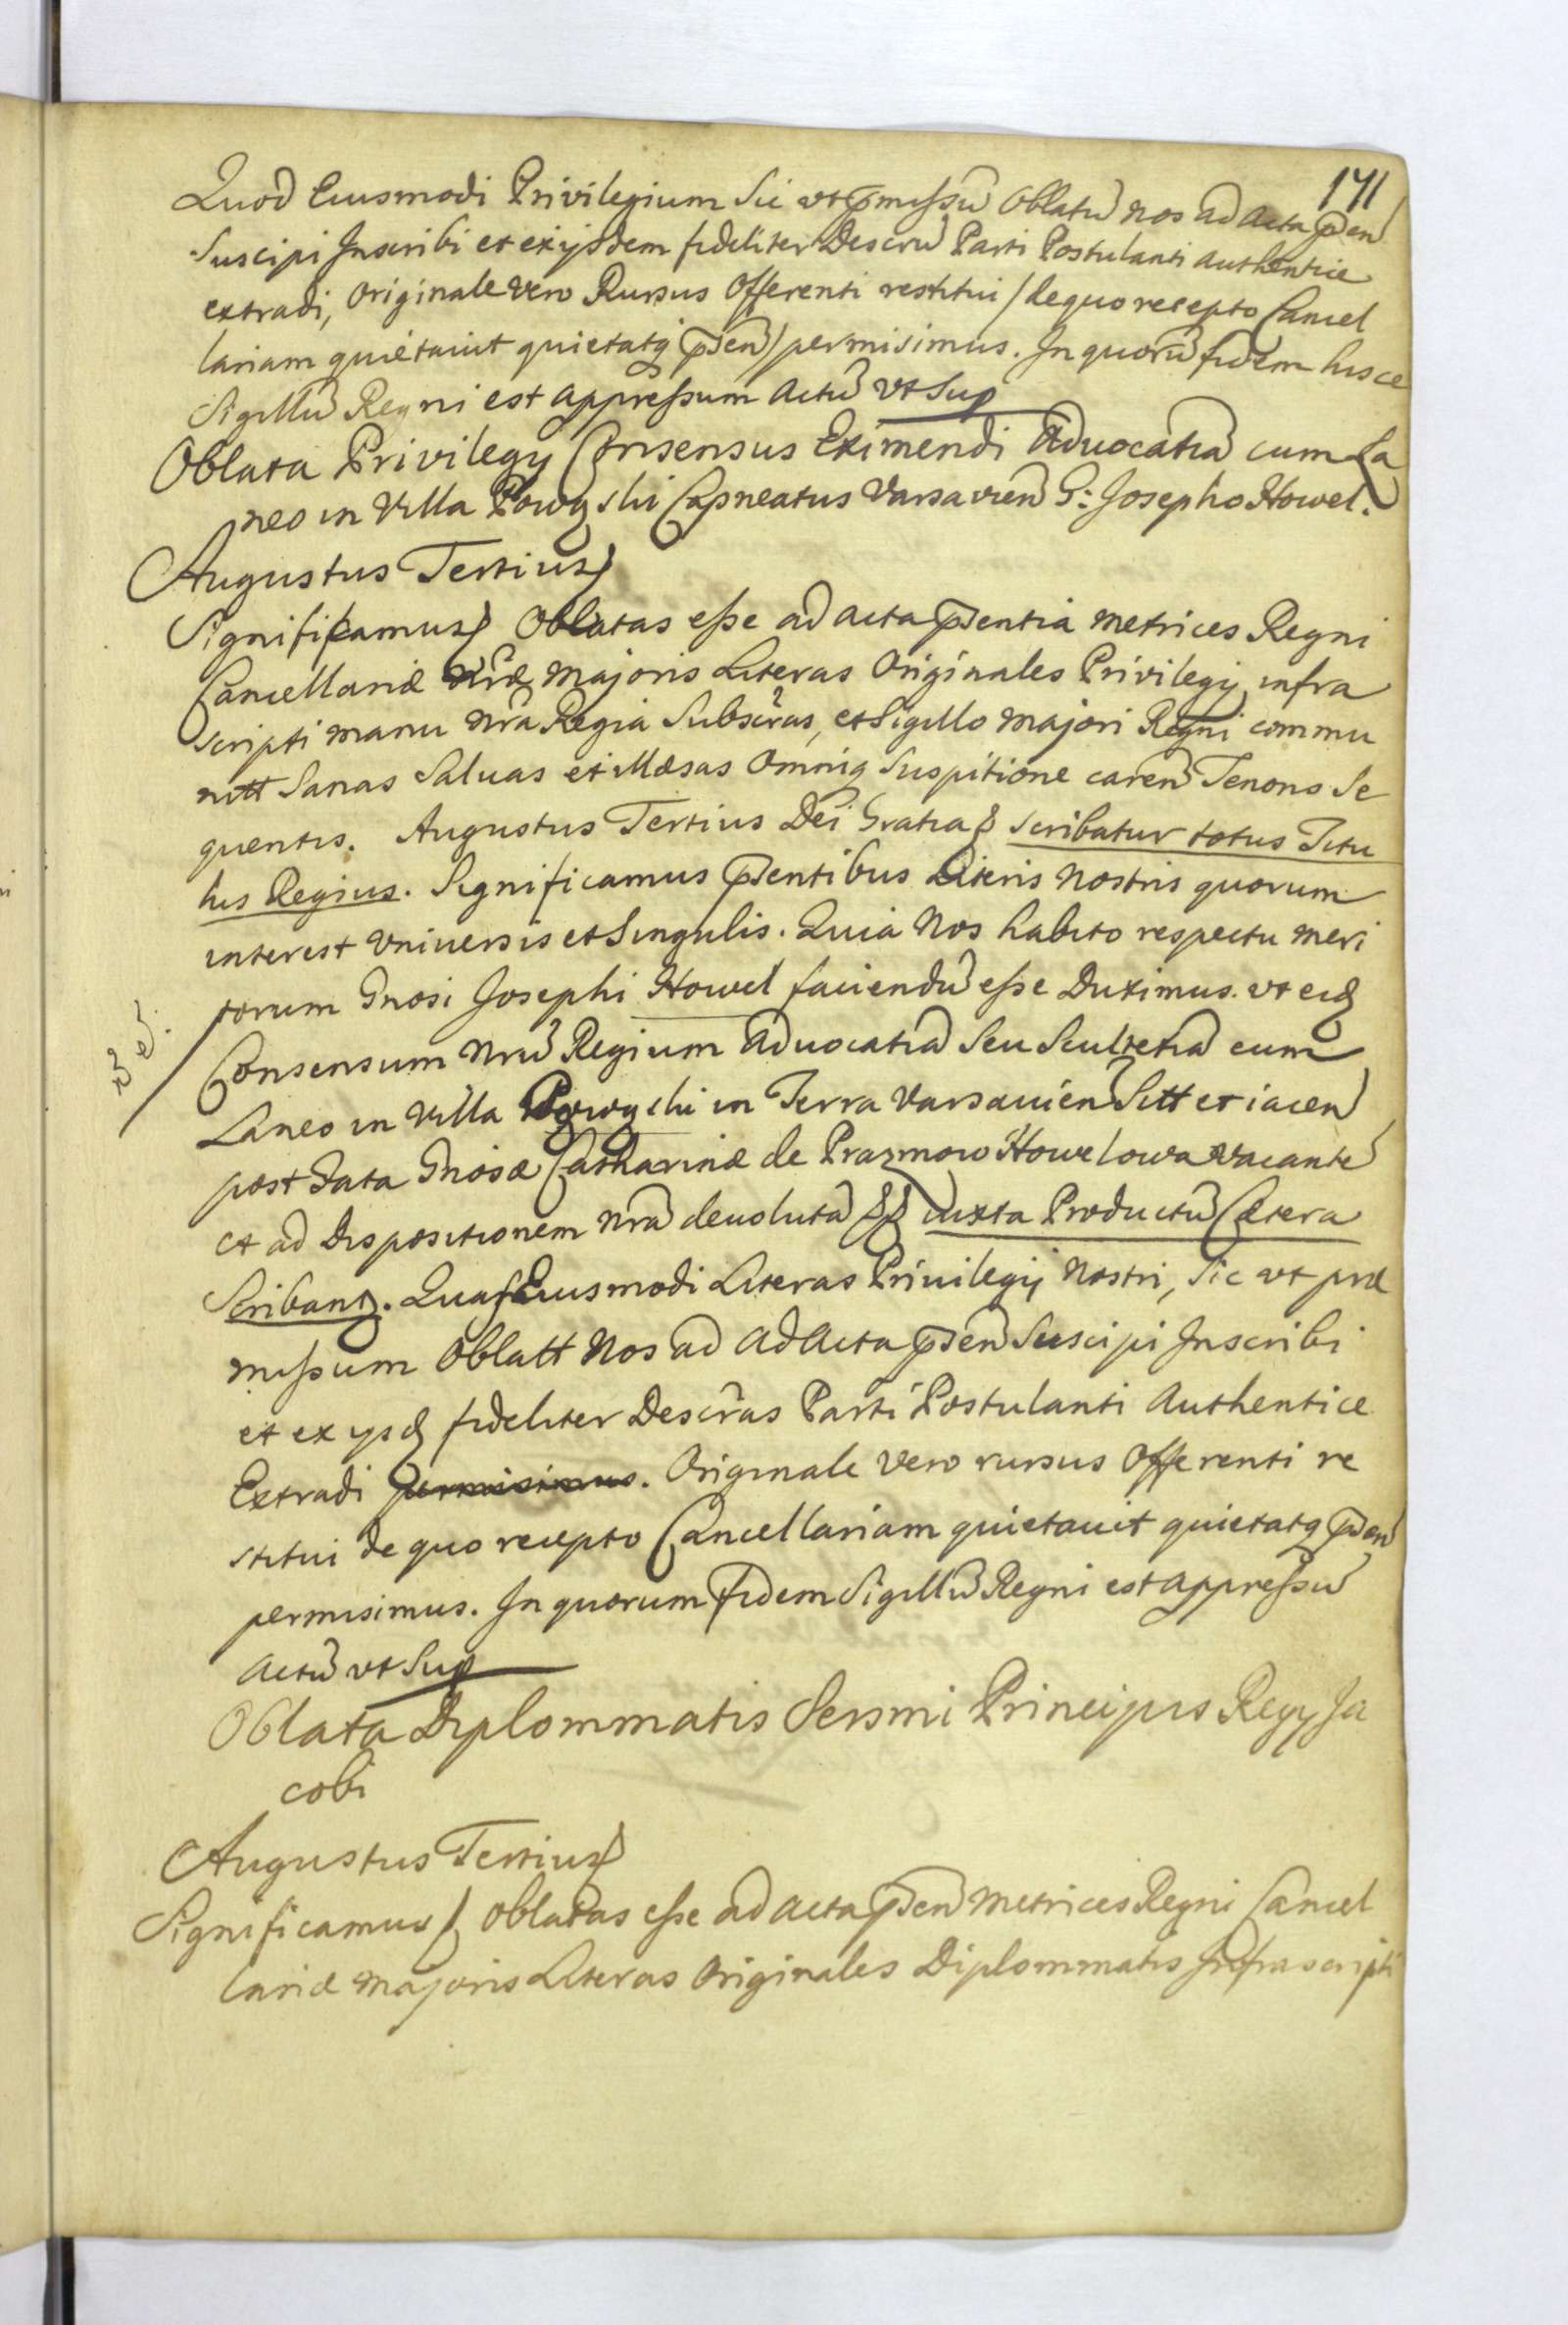 171
Quod Eiusmodi Privilegium Sic vt p̄missū Oblatū nos ad Acta p̄sen
Suscipi Inscribi et ex ijsdem fideliter Descrū Parti Postulanti Authentice
extradi, Originale vero Rursus Offerenti restitui / de quo recepto Cancel
lariam quietavit quietatq p̄sen / permisimus. In quorū fidem hisce
Sigillū Regni est appressum Actū vt Sup
Oblata Privilegy Consensus Eximendi Aduocatiā cum La
neo in Villa Powązki Capneatus Varsavien G: Josepho Howel.
Augustus Tertius
Significamus Oblatas esse ad acta p̄sentia Metrices Regni
Cancellariæ Majoris Literas Originales Privilegij infra
scripti manu nrā Regia Subscras, et Sigillo majori Regni commu
nitt Sanas Saluas et illæsas Omniq Suspitione caren Tenoris Se
quentis. Augustus Tertius Dei Gratia scribatur totus Titu
lus Regius. Significamus p̄sentibus Literis Nostris quorum
interest Vniuersis et Singulis. Quia Nos habito respectu meri
torum Gnosi Josephi Howel faciendū esse Duximus. vt eid
Consensum Nrū Regium Aduocatiā Seu Scultetiā cum
Laneo in Villa Powązki in Terra Varsauien Sitt et iacen
post Fata Gnosæ Catharinæ de Prazmow Howelowa vacantē
et ad Dispositionem nrā deuolutā iuxta Productū Cætera
Scribant. Quas Eiusmodi Literas Priuilegij Nostri, Sic vt præ
missum Oblatt Nos ad Ad Acta p̄sen Suscipi Inscribi
et ex ysd fideliter Descras Parti Postulanti Authentice
Extradi permisimus. Originale Vero rursus Offerenti re
stitui de quo recepto Cancellariam quietauit quietatq p̄sen
permisimus. In quorum fidem Sigillū Regni est appressū
Actū vt Sup
Oblata Diplommatis Sersmi Principis Regy Ja
cobi
Augustus Tertius
Significamus Oblatas esse ad acta p̄sen Metrices Regni Cancel
lariæ Majoris Literas Originales Diplommatis Infrascripti